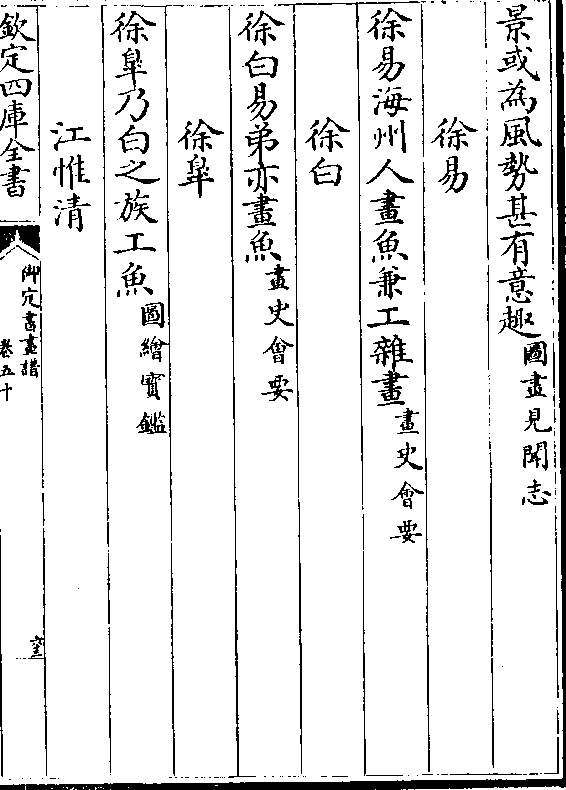 景或為風勢甚有意趣圖畫見聞志
徐易
徐易海州人畫魚兼工雜畫畫史會要
徐白
徐白易弟亦畫魚畫史會要
徐皐
徐皐乃白之族工魚圖繪寳鑑
江惟清
欽定四庫全書
御定書畫譜
卷五十